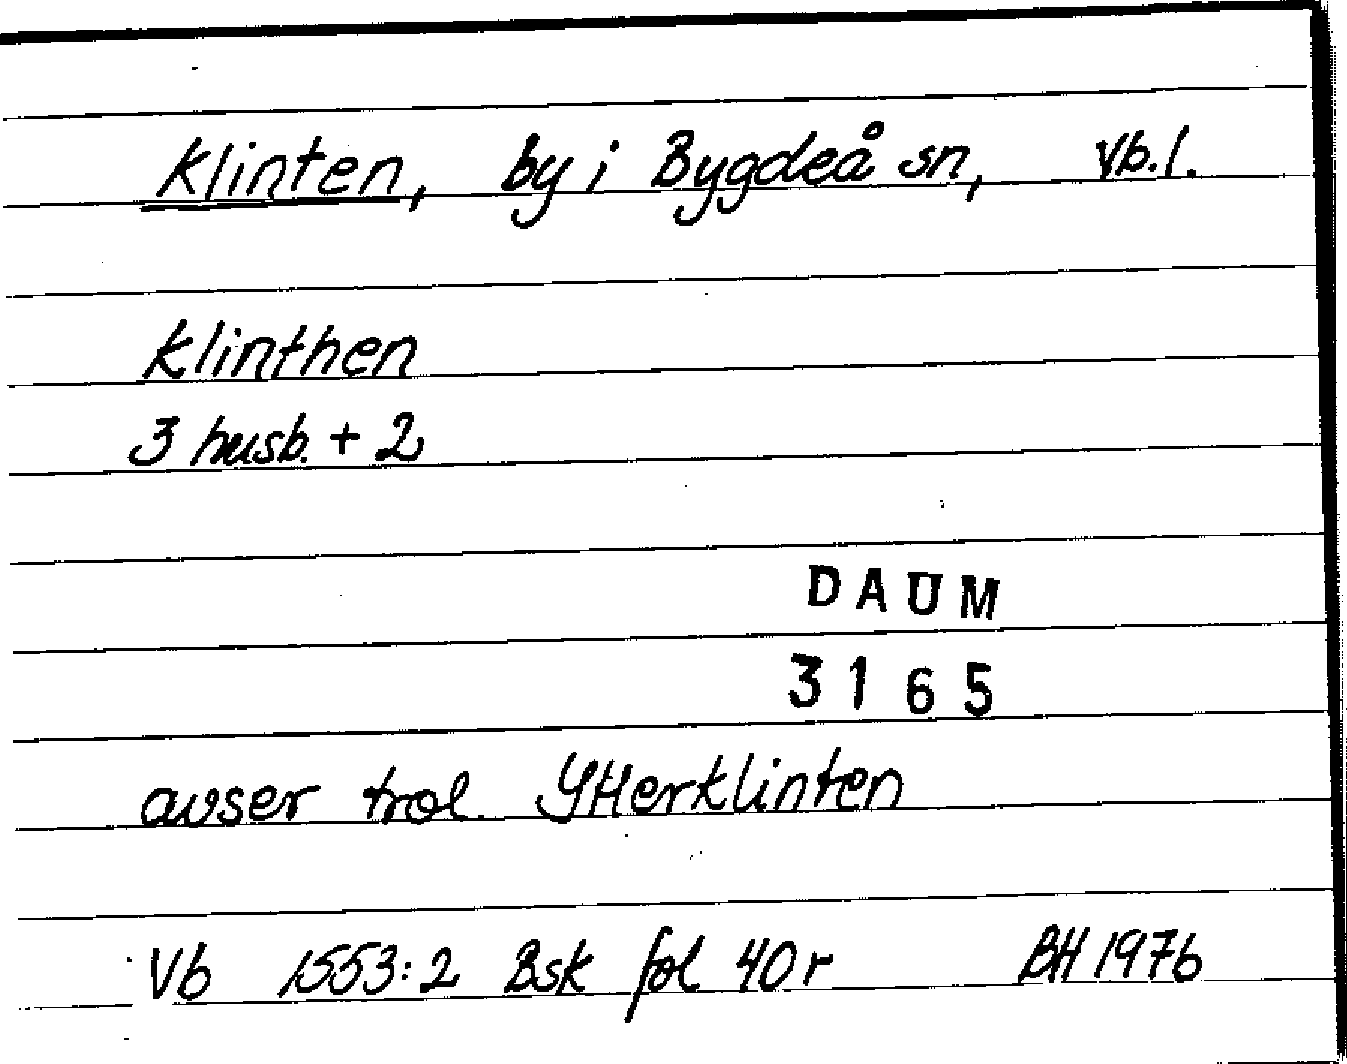 Klinten, by i Bygdeå sn, Vb.l.
Klinthen
3 husb. + 2
DAUM
3165
avser trol. Ytterklinten
Vb 1553:2 Bsk fol 40 r BH 1976